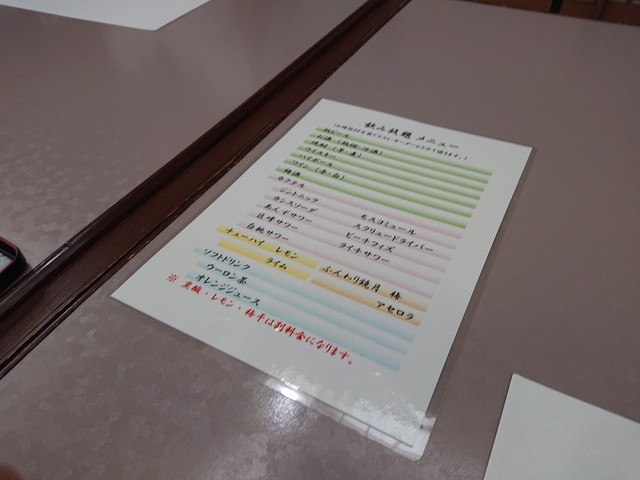 飲み放題 メニュー
瓶ビール
お酒（熱燗・冷酒）
焼酎（芋・麦）
ウイスキー
ハイボール
ワイン（赤・白）
梅酒
カクテル
ジントニック モスコミュール
カシスソーダ スクリュードライバー
あんずサワー ピーチフィズ
巨峰サワー ライチサワー
白桃サワー
チューハイ レモン ふんわり鏡月 梅
ライム アセロラ
ソフトドリンク
ウーロン茶
オレンジジュース
※ 炭酸・レモン・梅干は別料金になります。